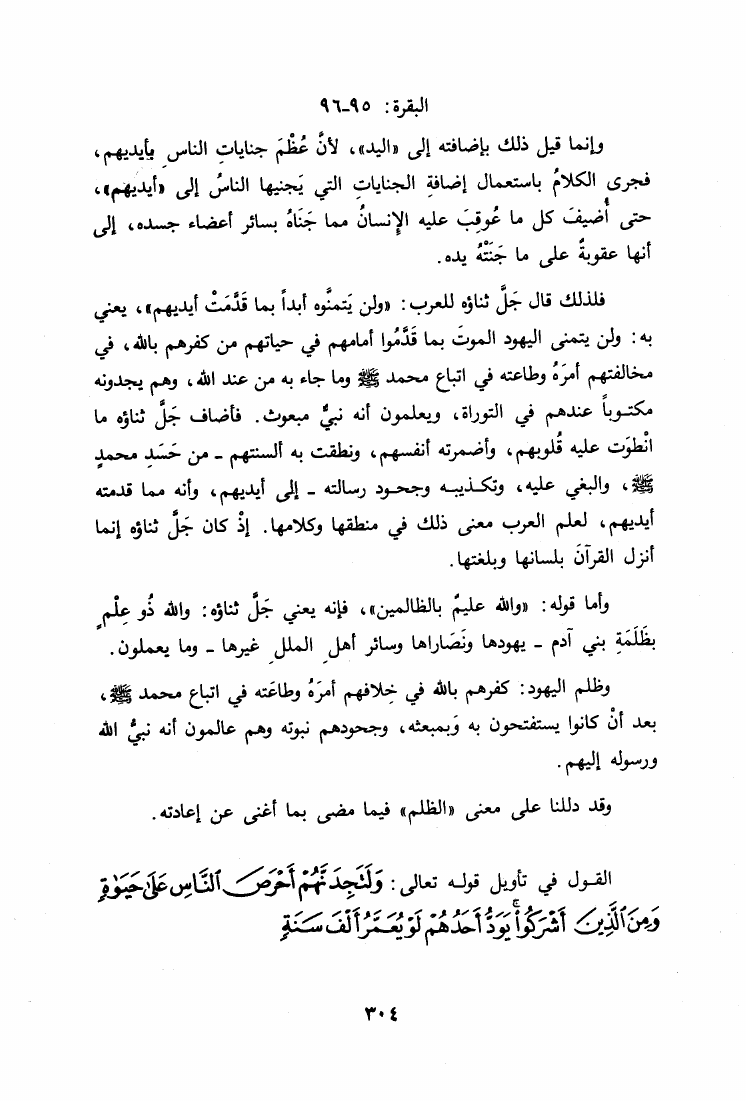 البقرة: ٩٥-٩٦
وإنما قيل ذلك بإضافته إلى «اليد»، لأنَّ عُظْمَ جناياتِ الناس بأيديهم،
فجرى الكلامُ باستعمال إضافةِ الجناياتِ التي يَجنيها الناسُ إلى «أيديهم»،
حتى أُضيفَ كل ما عُوقِبَ عليه الإنسانُ مما جَنَاهُ بسائر أعضاء جسده، إلى
أنها عقوبةٌ على ما جَنَتْهُ يده.
فلذلك قال جَلَّ ثناؤه للعرب: «ولن يَتمنَّوه أبداً بما قَدَّمَتْ أيديهم»، يعني
به: ولن يتمنى اليهود الموتَ بما قَدَّمُوا أمامهم في حياتهم من كفرهم بالله، في
مخالفتهم أمرَهُ وطاعته في اتباع محمد ﷺ وما جاء به من عند الله، وهم يجدونه
مكتـوباً عندهم في التوراة، ويعلمون أنه نبيٌّ مبعوث. فأضاف جَلَّ ثناؤه ما
انْطوَت عليه قُلوبهم، وأضمرته أنفسهم، ونطقت به ألسنتهم - من حَسَدِ محمدٍ
ﷺ، والبغي عليه، وتكـذيبـه وجحـود رسالته - إلى أيديهم، وأنه مما قدمته
أيديهم، لعلم العرب معنى ذلك في منطقها وكلامها. إذْ كان جَلَّ ثناؤه إنما
أنزل القرآنَ بلسانها وبلغتها.
وأما قوله: «والله عليمٌ بالظالمين»، فإنه يعني جَلَّ ثناؤه: والله ذُو عِلْمٍ
بظَلَمَةِ بني آدم - يهودها ونَصَاراها وسائر أهلِ المللِ غيرها - وما يعملون.
وظلم اليهود: كفرهم بالله في خِلافهم أمرَهُ وطاعَته في اتباع محمد ﷺ،
بعد أنْ كانوا يستفتحون به وَبمبعثه، وجحودهم نبوته وهم عالمون أنه نبيُّ الله
ورسوله إليهم.
وقد دللنا على معنى «الظلم» فيما مضى بما أغنى عن إعادته.
القـول في تأويل قولـه تعالى: وَلَتَجِدَنَّهُمْ أَحْرَصَ ٱلنَّاسِ عَلَىٰ حَيَوٰةٍ
وَمِنَ ٱلَّذِينَ أَشْرَكُوا۟ ۚ يَوَدُّ أَحَدُهُمْ لَوْ يُعَمَّرُ أَلْفَ سَنَةٍ
٣٠٤